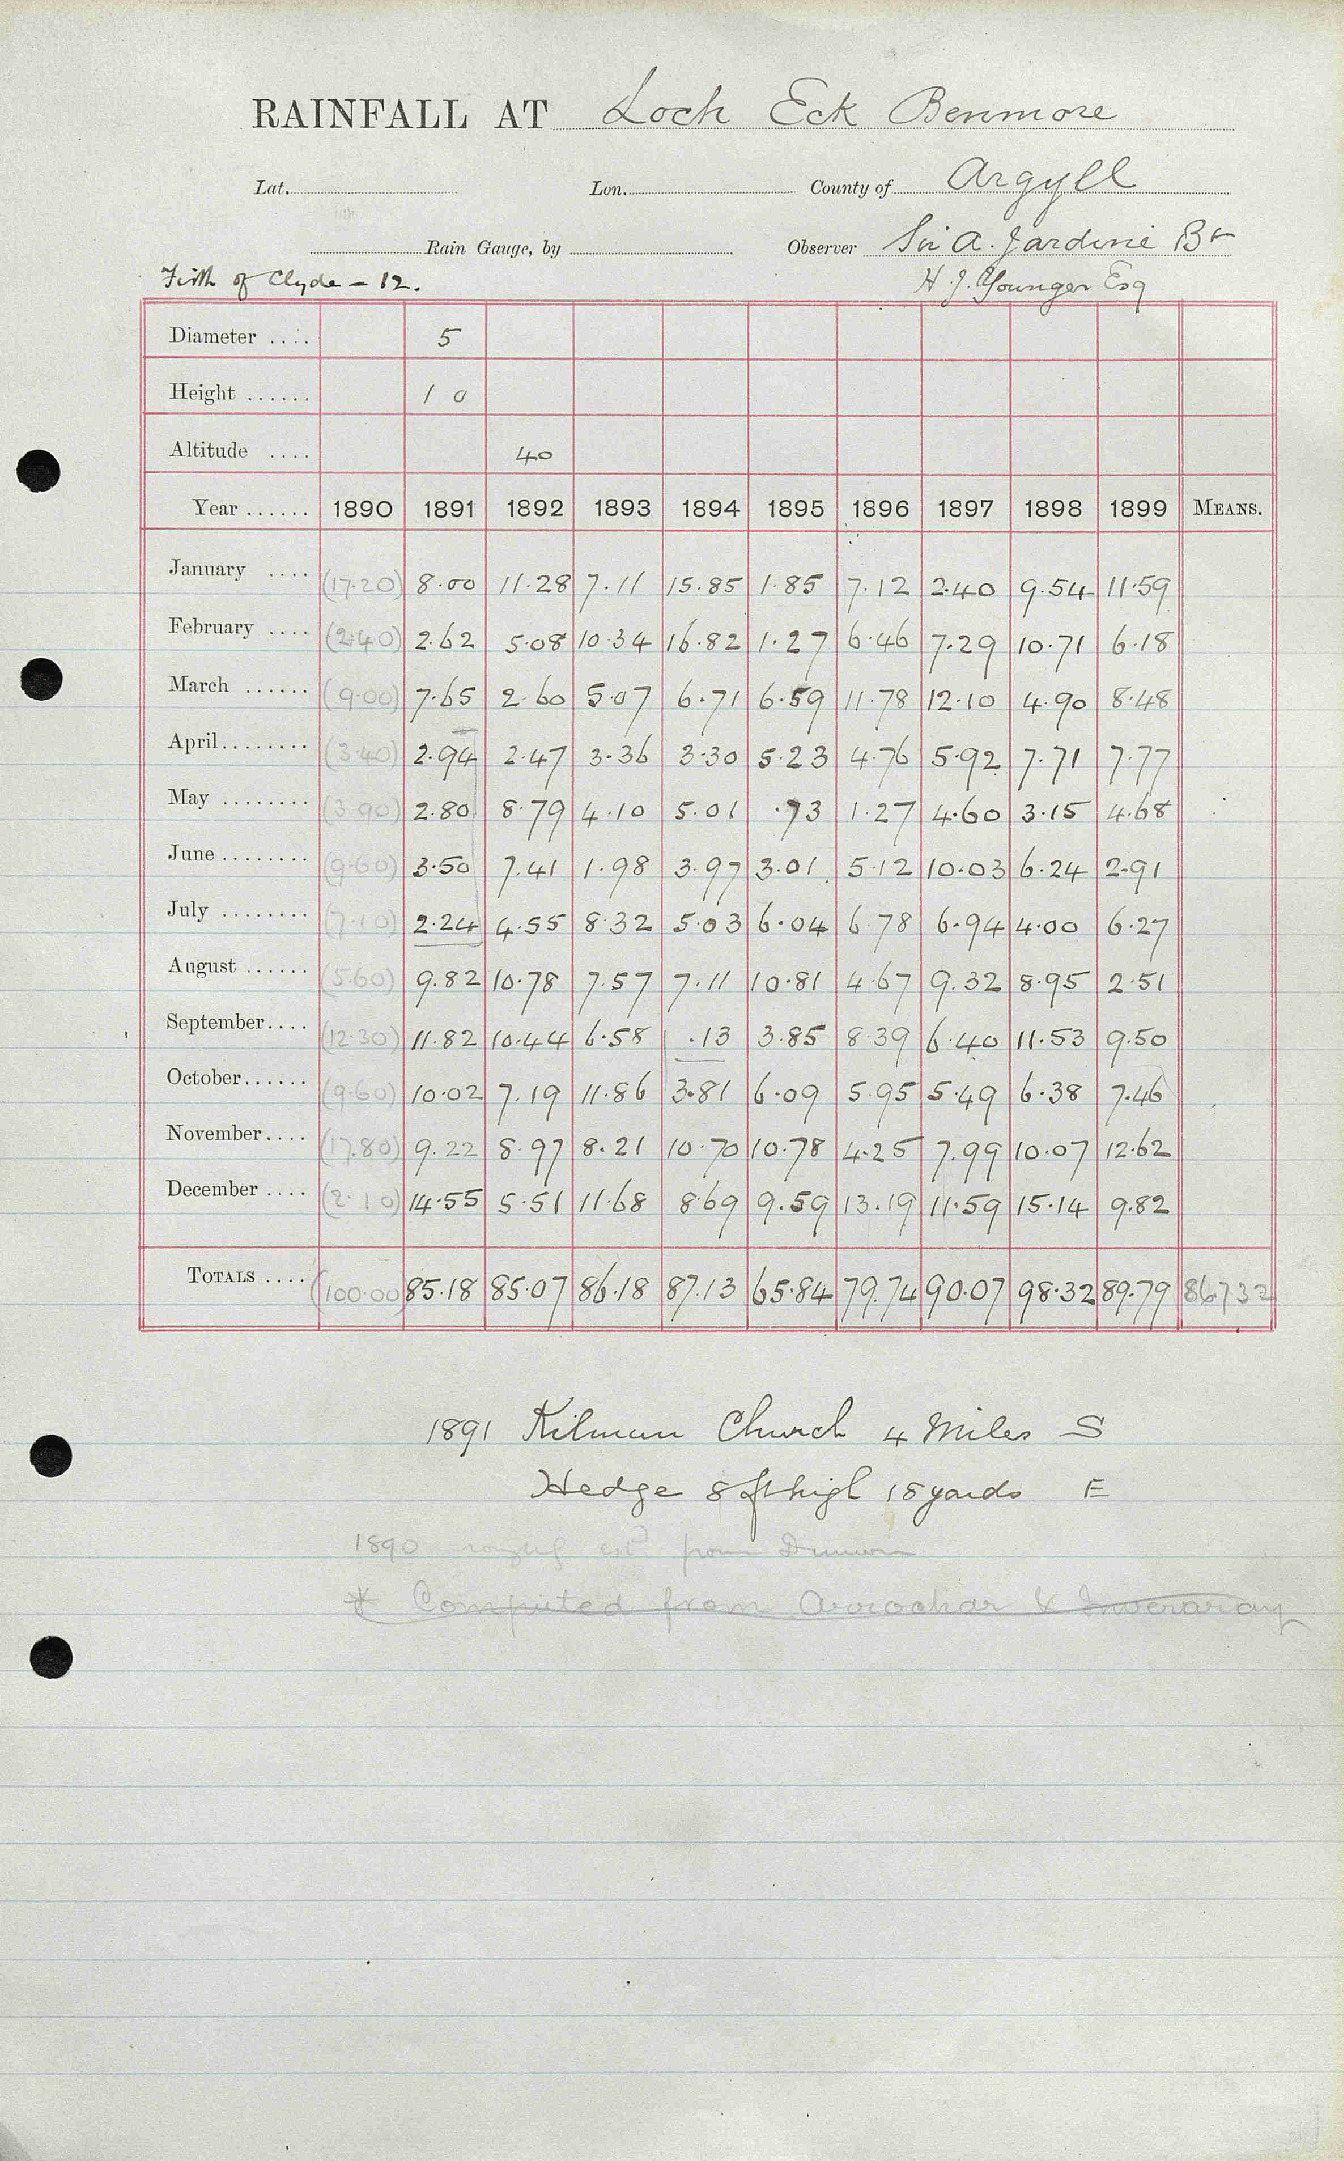 RAINFALL AT Loch Eck Benmore
Lat. Lon. County of Argyll
Rain Gauge, by Observer Sir A. Jardine Bt
Firth of Clyde - 12. H. J. Younger Esq
Diameter .... 5
Height ...... 1 0
Altitude .... 40
Year ...... 1890 1891 1892 1893 1894 1895 1896 1897 1898 1899 MEANS.
January .... (17.20) 8.00 11.28 7.11 15.85 1.85 7.12 2.40 9.54 11.59
February .... (2.40) 2.62 5.08 10.34 16.82 1.27 6.46 7.29 10.71 6.18
March ...... (9.00) 7.65 2.60 5.07 6.71 6.59 11.78 12.10 4.90 8.48
April........ (3.40) 2.94 2.47 3.36 3.30 5.23 4.76 5.92 7.71 7.77
May ........ (3.90) 2.80 8.79 4.10 5.01 .73 1.27 4.60 3.15 4.68
June ........ (9.60) 3.50 7.41 1.98 3.97 3.01 5.12 10.03 6.24 2.91
July ........ (7.10) 2.24 4.55 8.32 5.03 6.04 6.78 6.94 4.00 6.27
August ...... (5.60) 9.82 10.78 7.57 7.11 10.81 4.67 9.32 8.95 2.51
September.... (12.30) 11.82 10.44 6.58 .13 3.85 8.39 6.40 11.53 9.50
October...... (9.60) 10.02 7.19 11.86 3.81 6.09 5.95 5.49 6.38 7.46
November.... (17.80) 9.22 8.97 8.21 10.70 10.78 4.25 7.99 10.07 12.62
December .... (2.10) 14.55 5.51 11.68 8.69 9.59 13.19 11.59 15.14 9.82
TOTALS .... (100.00) 85.18 85.07 86.18 87.13 65.84 79.74 90.07 98.32 89.79 86.732
1891 Kilmun Church 4 Miles S
Hedge 8 ft high 18 yards E
1890 roughly est. from Dunoon
* Computed from Arrochar & Inveraray